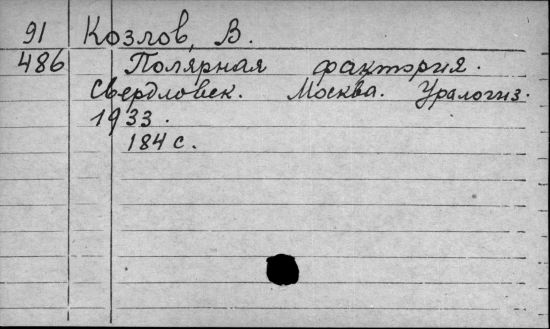 91 Козлов, В.
486 Полярная фактория.
Свердловск. Москва. Уралогиз.
1933.
184 с.